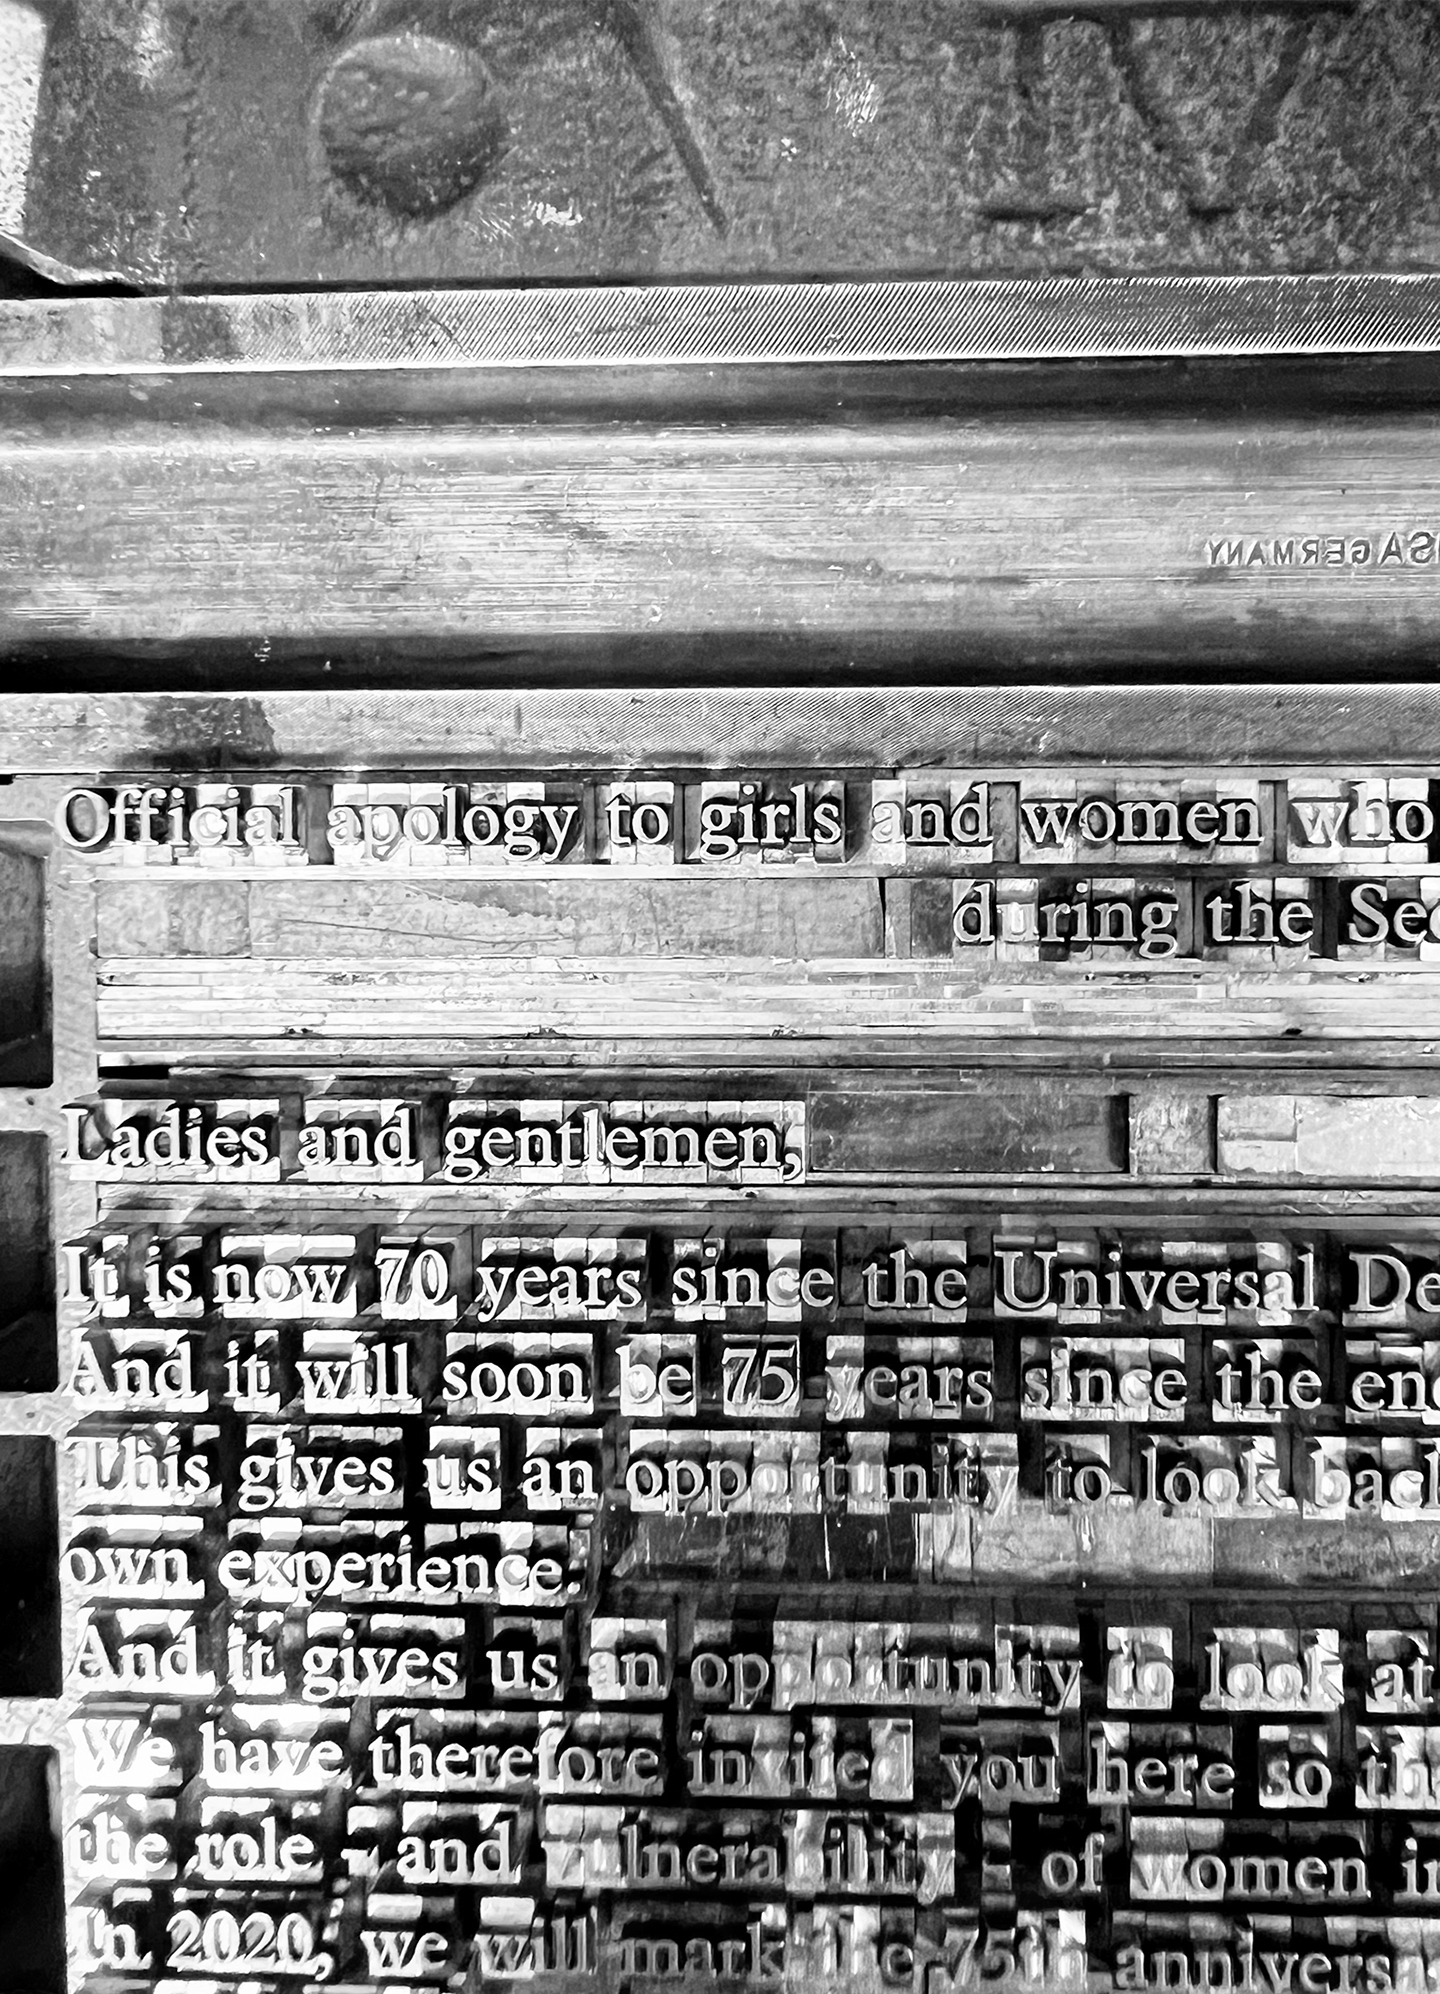 IV
SA GERMANY
Official apology to girls and women who
during the Sec
Ladies and gentlemen,
It is now 70 years since the Universal De
And it will soon be 75 years since the end
This gives us an opportunity to look back
own experience.
And it gives us an opportunity to look at
We have therefore invited you here so tha
the role - and vulnerability - of women in
In 2020, we will mark the 75th anniversa